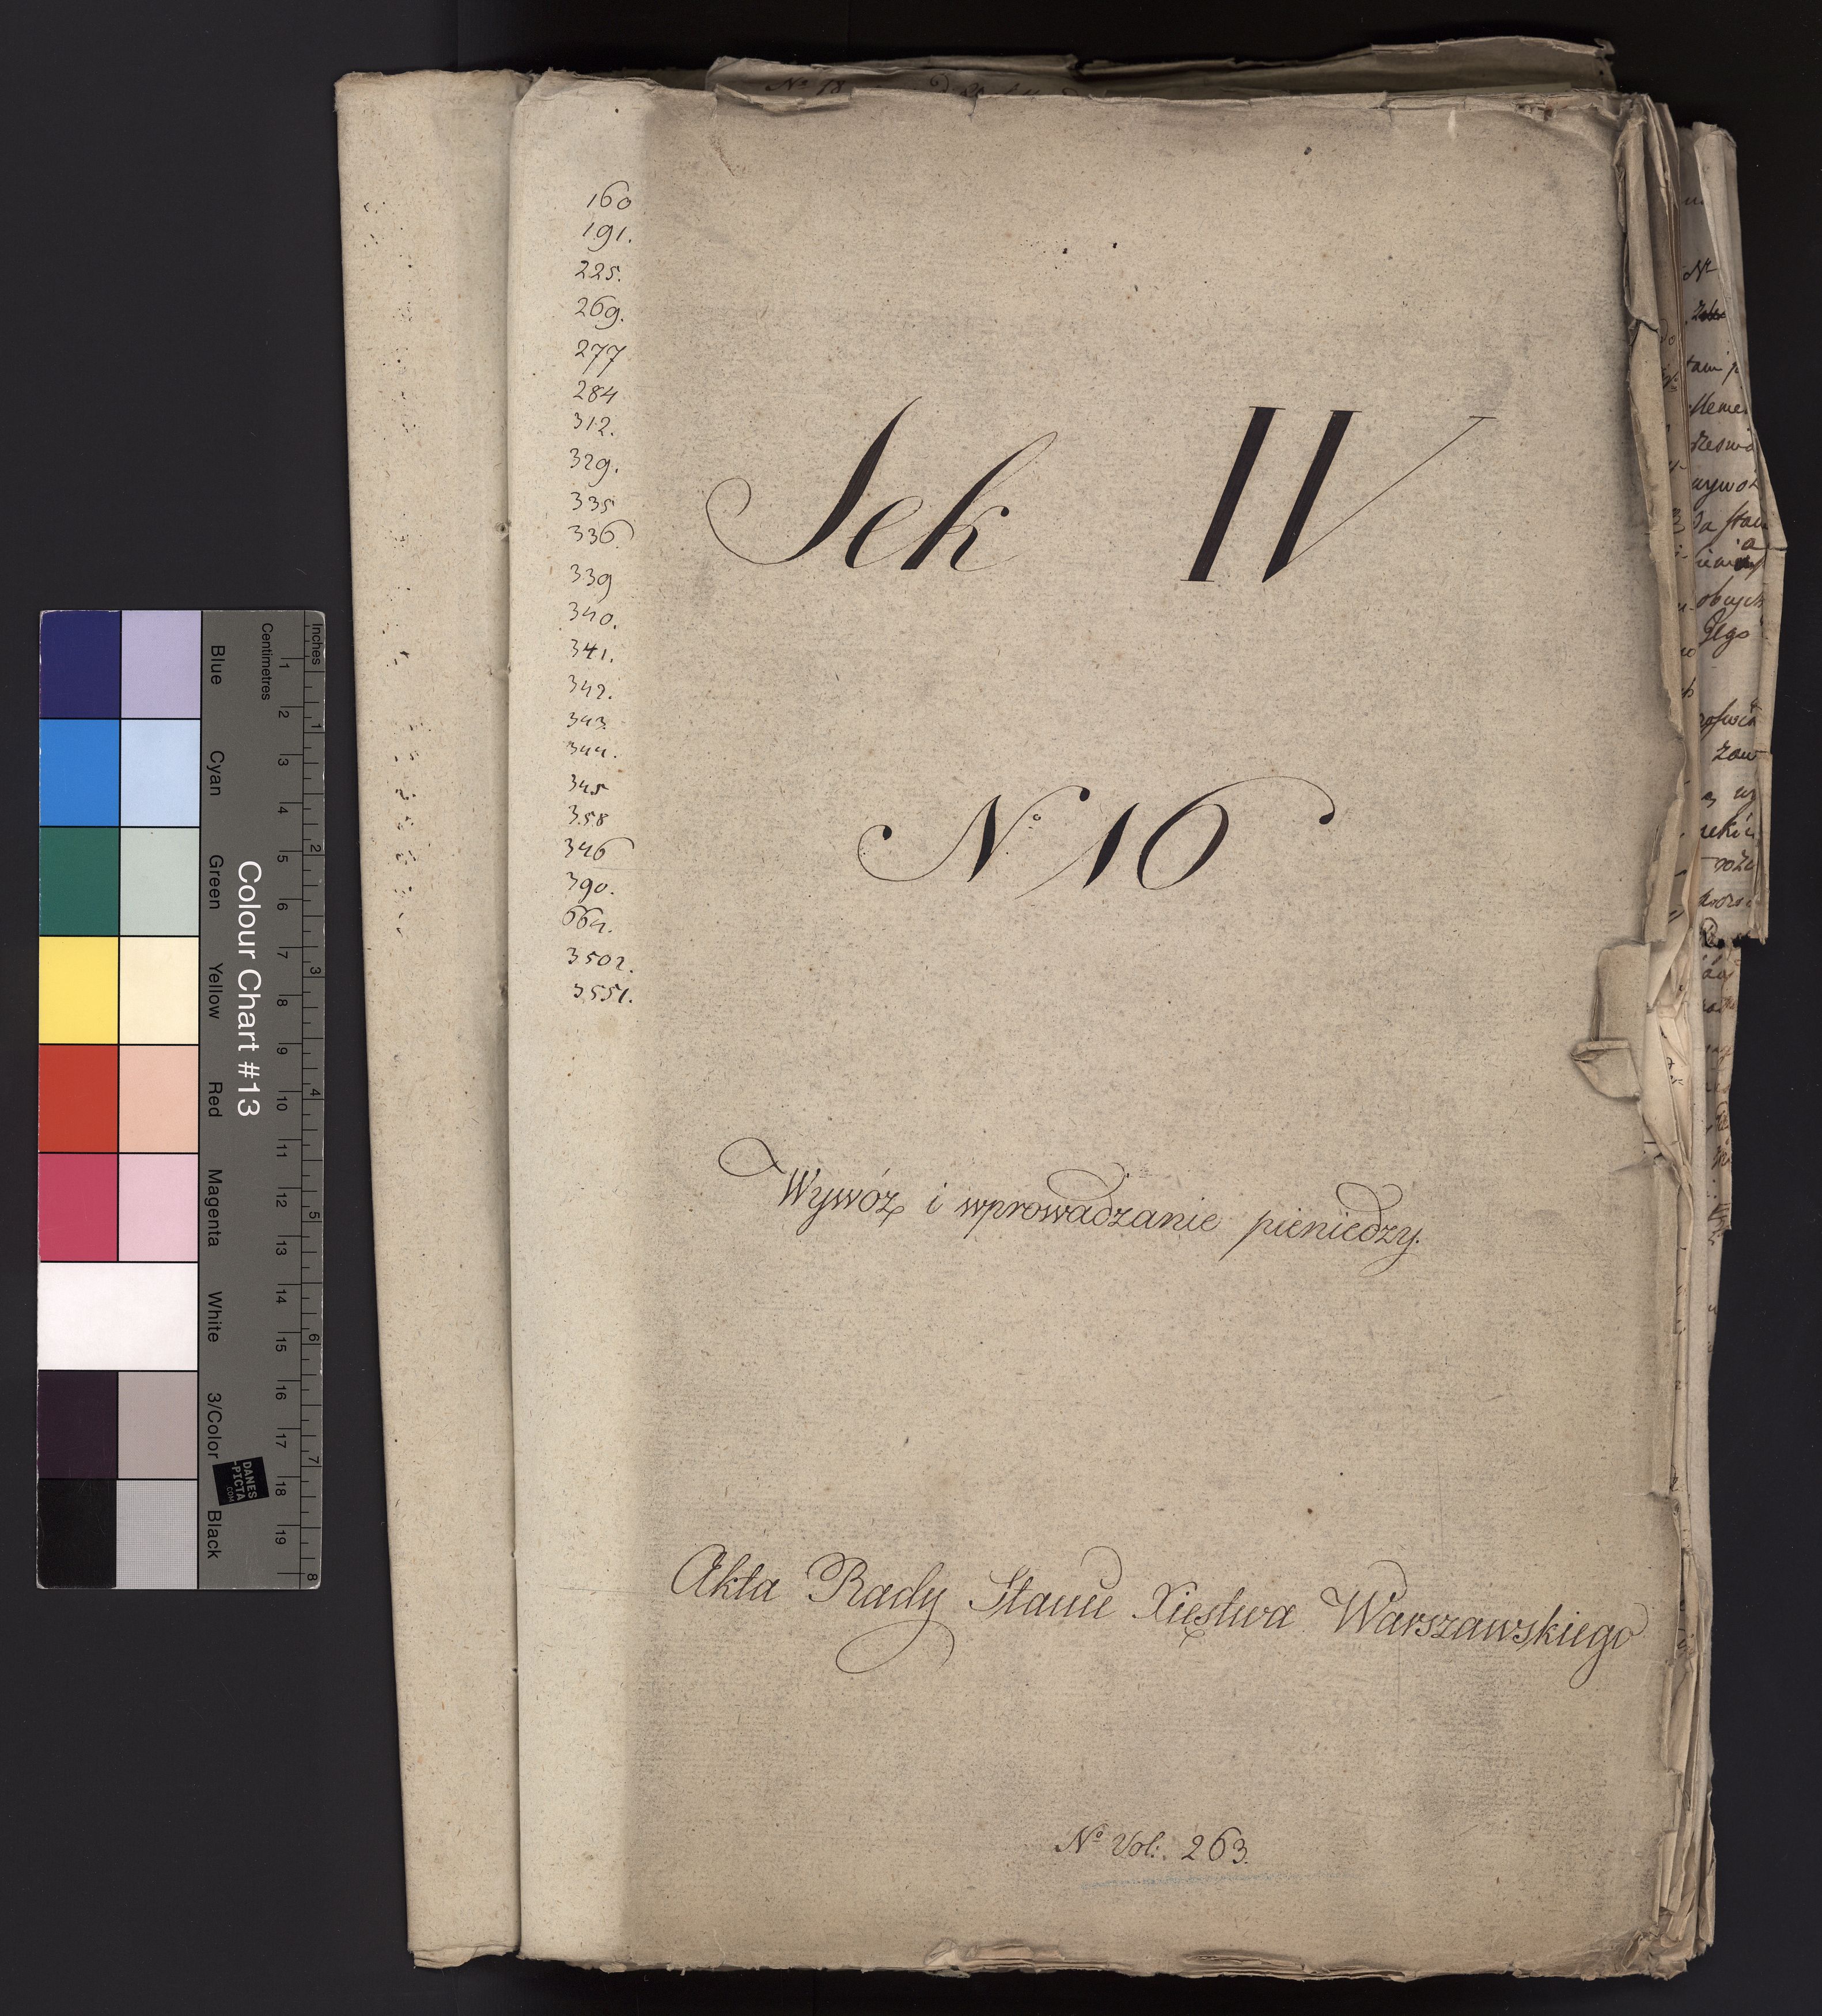 160
191.
225.
269.
277
284
312.
329.
335
336.
339
340.
341.
342.
343.
344.
345
358
346
390.
664.
3502.
3551.
Sek IV
No 16
Wywóz i wprowadzanie pieniedzy.
Akta Rady Stanu Xięstwa Warszawskiego
No Vol: 263.
Colour Chart #13
Blue
Cyan
Green
Yellow
Red
Magenta
White
3/Color
Black
Inches
1
2
3
4
5
6
7
8
Centimetres
1
2
3
4
5
6
7
8
9
10
11
12
13
14
15
16
17
18
19
DANES
-PICTA
.COM